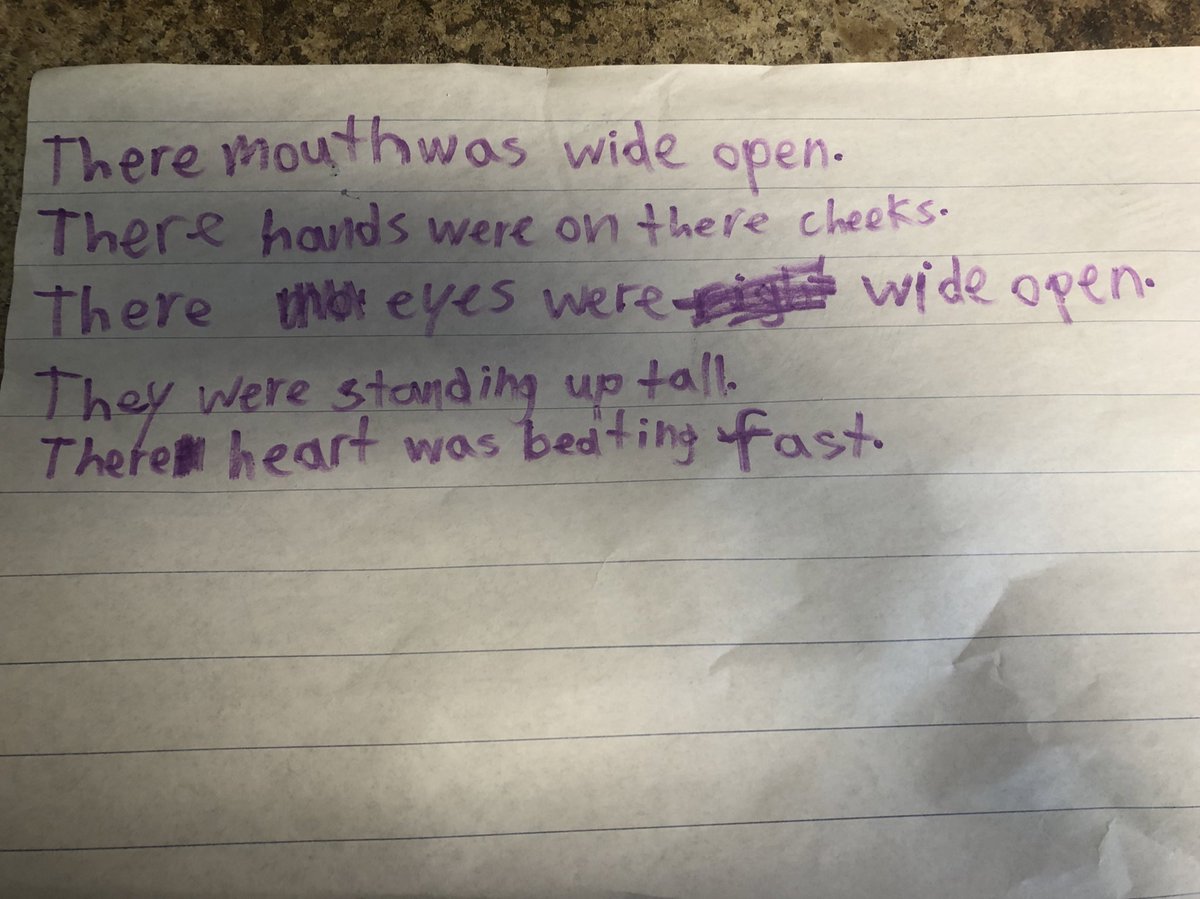 There mouth was wide open.
There hands were on there cheeks.
There eyes were wide open.
They were standing up tall.
There heart was beating fast.